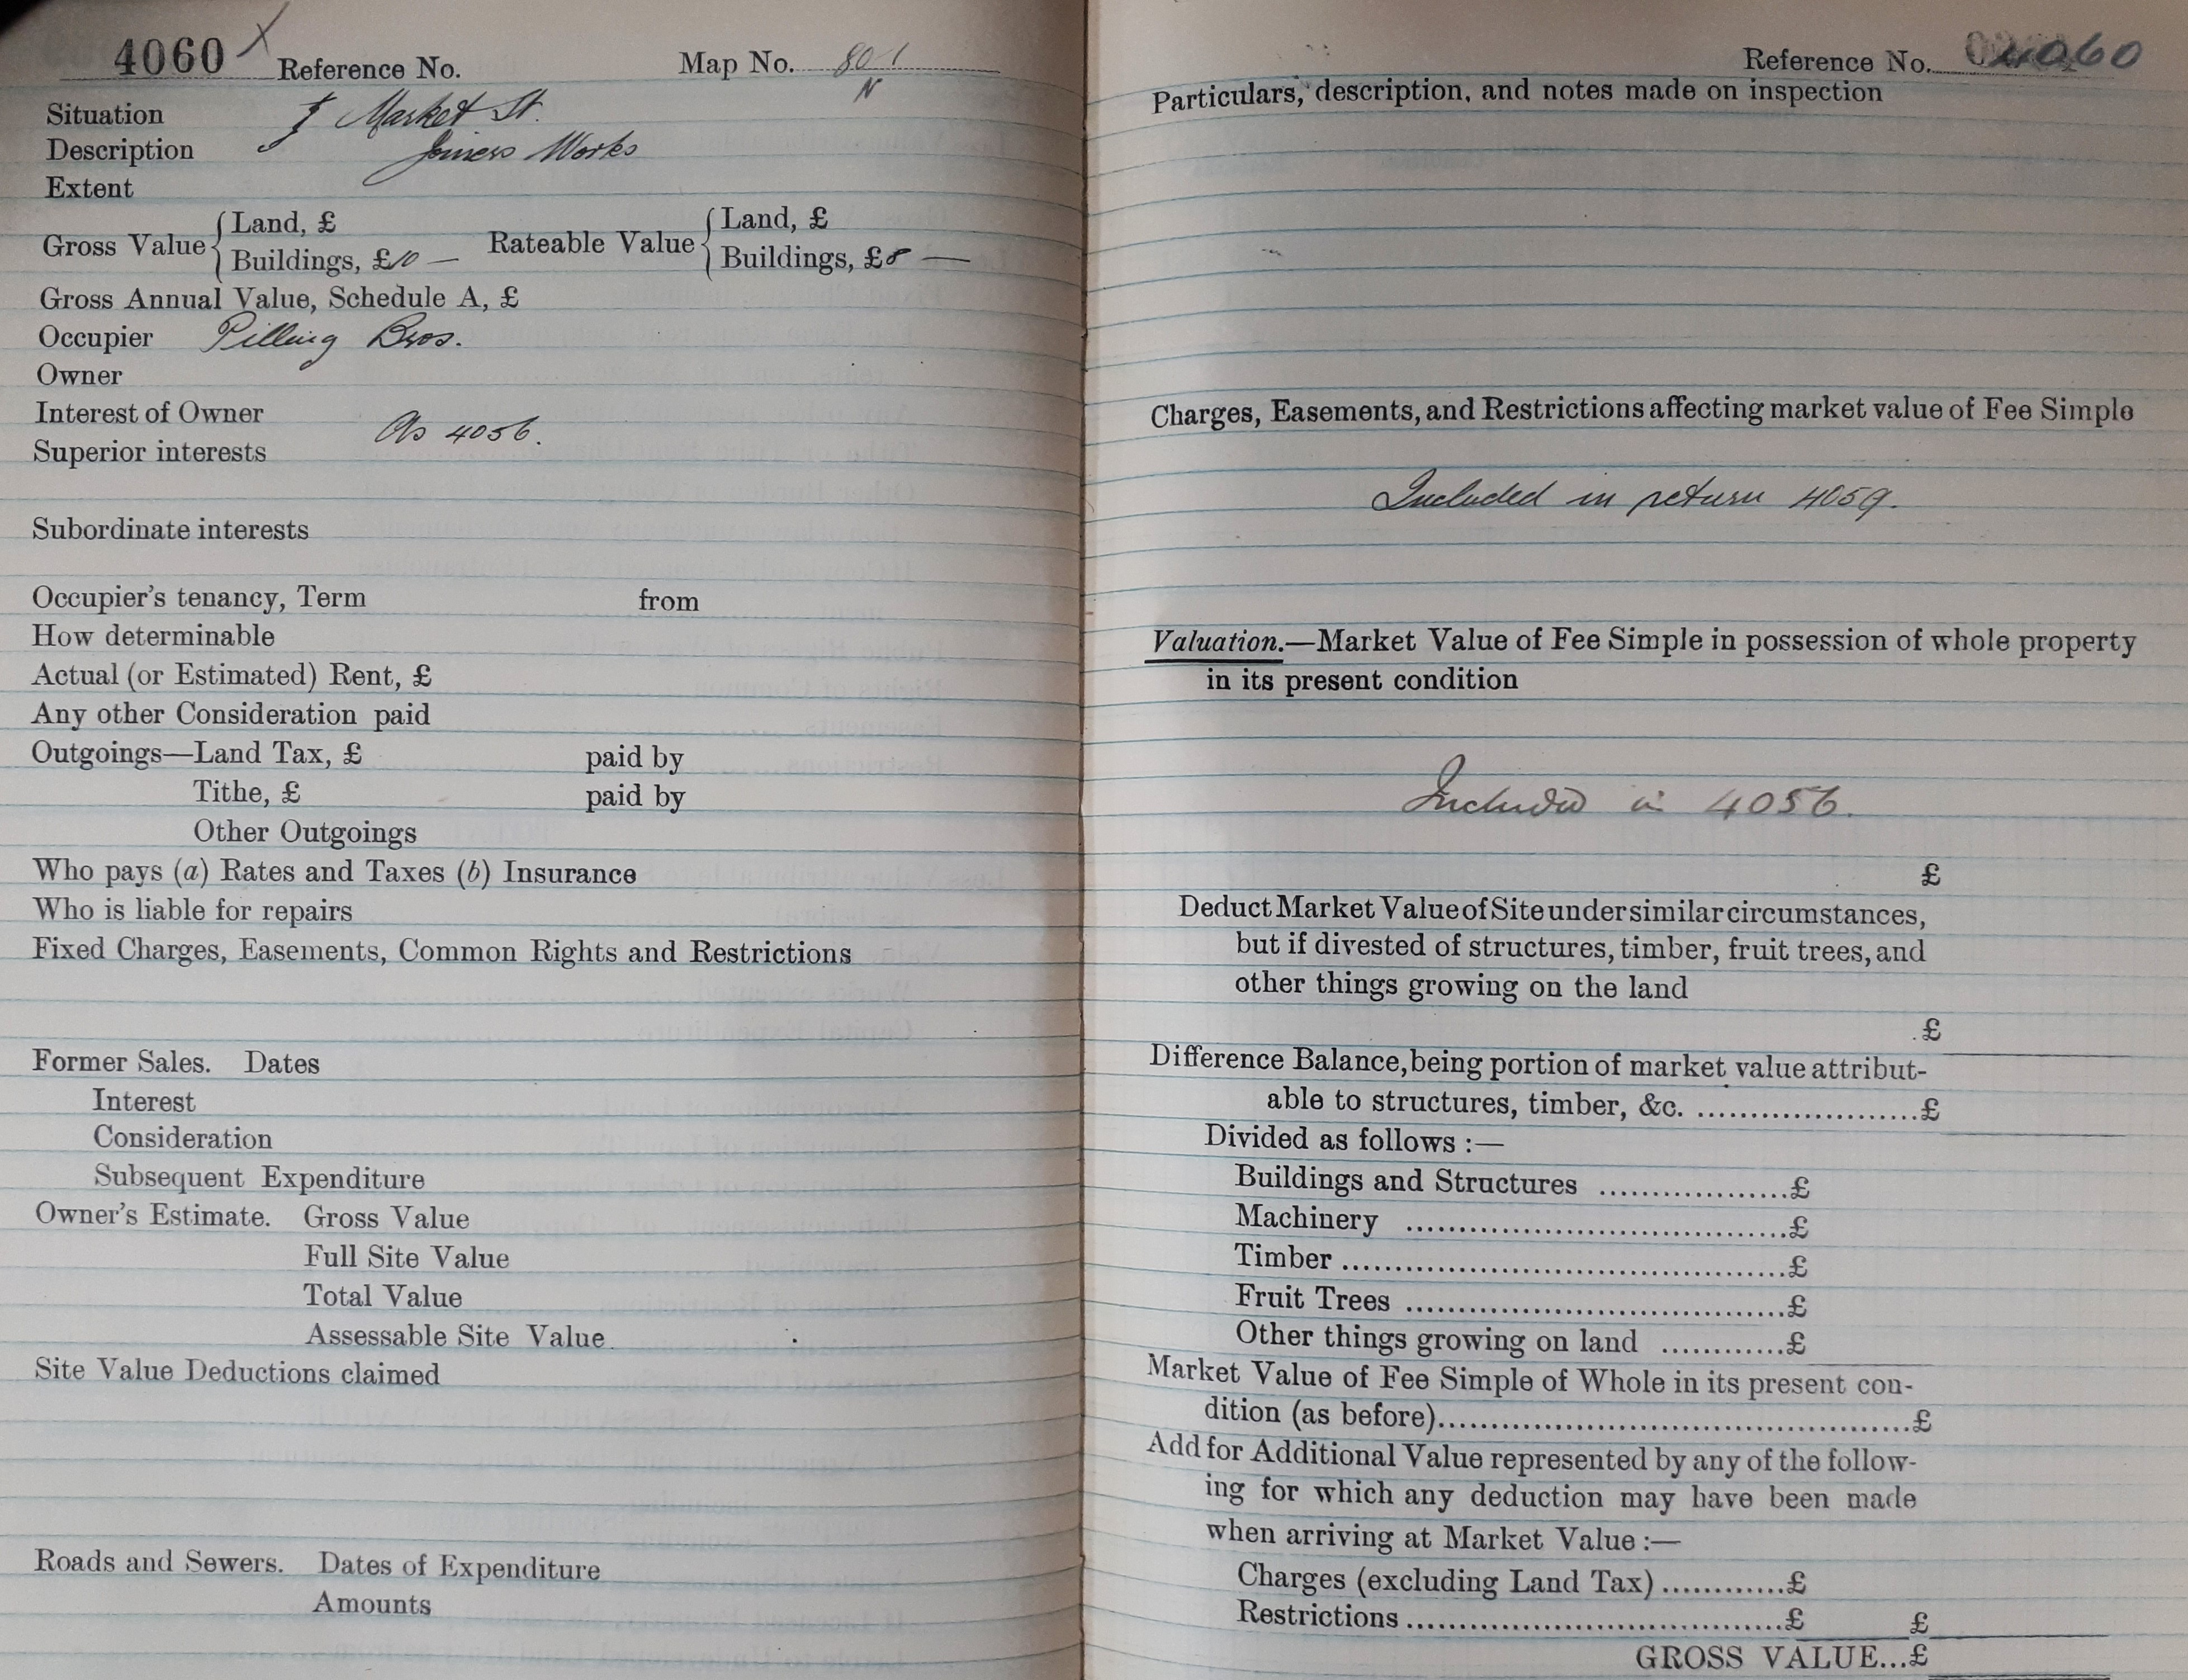 4060 X Reference No. Map No. 80/1
N
Situation Market St.
Description Joiners Works
Extent
Gross Value { Land, £ Rateable Value { Land, £
Buildings, £10 — Buildings, £8 —
Gross Annual Value, Schedule A, £
Occupier Pilling Bros.
Owner
Interest of Owner
As 4056.
Superior interests
Subordinate interests
Occupier's tenancy, Term from
How determinable
Actual (or Estimated) Rent, £
Any other Consideration paid
Outgoings—Land Tax, £ paid by
Tithe, £ paid by
Other Outgoings
Who pays (a) Rates and Taxes (b) Insurance
Who is liable for repairs
Fixed Charges, Easements, Common Rights and Restrictions
Former Sales. Dates
Interest
Consideration
Subsequent Expenditure
Owner's Estimate. Gross Value
Full Site Value
Total Value
Assessable Site Value
Site Value Deductions claimed
Roads and Sewers. Dates of Expenditure
Amounts
Reference No. 4060
Particulars, description, and notes made on inspection
Charges, Easements, and Restrictions affecting market value of Fee Simple
Included in return 4059.
Valuation.—Market Value of Fee Simple in possession of whole property
in its present condition
Included in 4056.
£
Deduct Market Value of Site under similar circumstances,
but if divested of structures, timber, fruit trees, and
other things growing on the land
£
Difference Balance, being portion of market value attribut-
able to structures, timber, &c. ....................£
Divided as follows :—
Buildings and Structures ..................£
Machinery ....................................£
Timber ..........................................£
Fruit Trees ....................................£
Other things growing on land ............£
Market Value of Fee Simple of Whole in its present con-
dition (as before)..........................................£
Add for Additional Value represented by any of the follow-
ing for which any deduction may have been made
when arriving at Market Value :—
Charges (excluding Land Tax) ............£
Restrictions ....................................£ £
GROSS VALUE...£